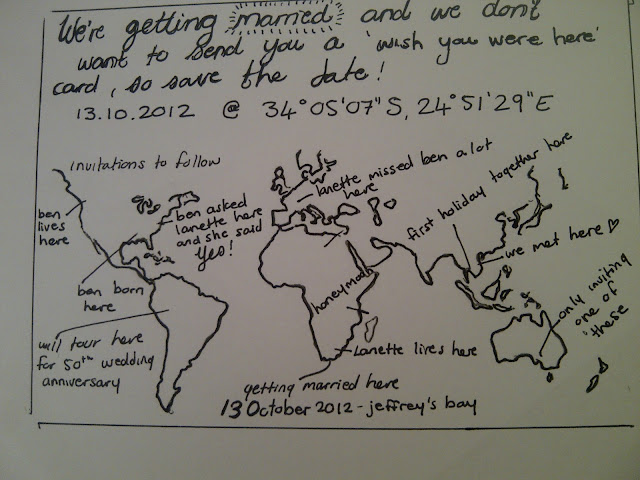 We're getting married and we don't
want to send you a 'wish you were here'
card, so save the date!
13.10.2012 @ 34°05'07"S, 24°51'29"E
invitations to follow
ben
lives
here
ben born
here
ben asked
lanette here
and she said
yes!
lanette missed ben a lot
here
first holiday together here
we met here ♡
only inviting
one of
these
honeymoon
will tour here
for 50th wedding
anniversary
Lanette lives here
getting married here
13 October 2012 - jeffrey's bay